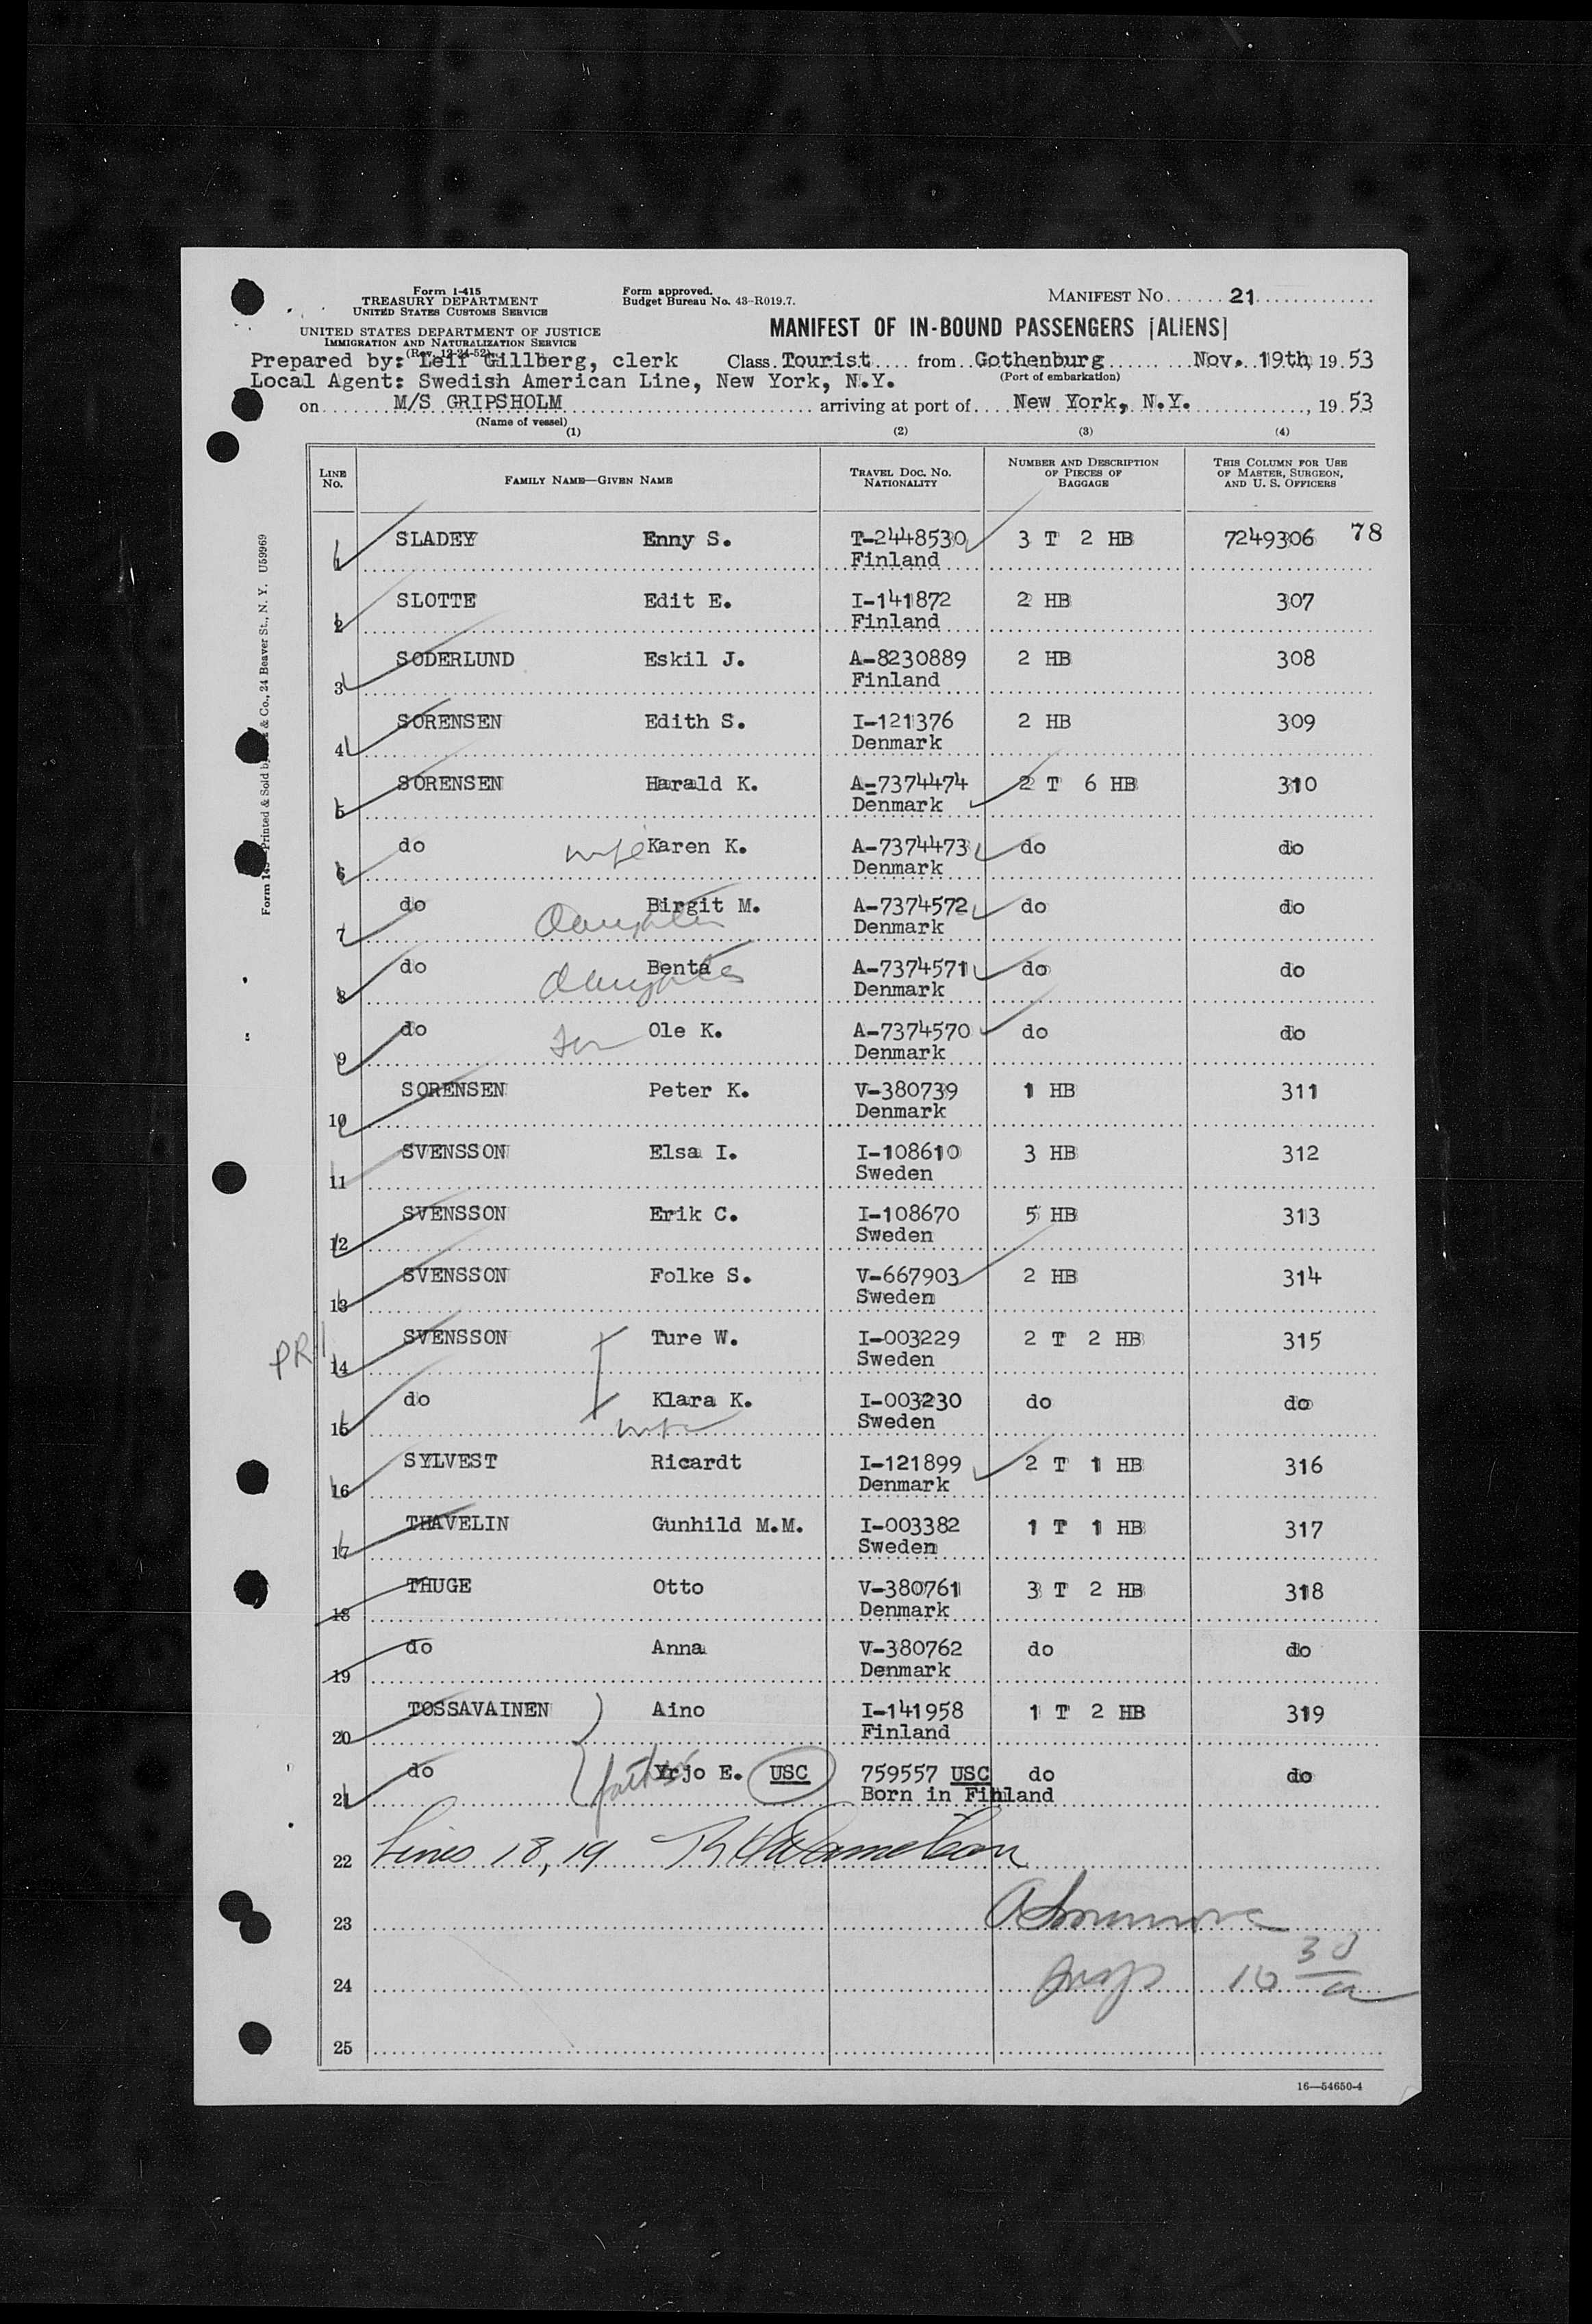 Form I-415
TREASURY DEPARTMENT
UNITED STATES CUSTOMS SERVICE
UNITED STATES DEPARTMENT OF JUSTICE
IMMIGRATION AND NATURALIZATION SERVICE
(Rev. 12-24-52)
Form approved.
Budget Bureau No. 43-R019.7.
MANIFEST NO. 21
MANIFEST OF IN-BOUND PASSENGERS [ALIENS]
Prepared by: Leif Gillberg, clerk Class Tourist from Gothenburg Nov. 19th, 19 53
Local Agent: Swedish American Line, New York, N.Y. (Port of embarkation)
on M/S GRIPSHOLM arriving at port of New York, N.Y., 19 53
(Name of vessel)
(1) (2) (3) (4)
LINE NO. FAMILY NAME—GIVEN NAME TRAVEL DOC. NO. NATIONALITY NUMBER AND DESCRIPTION OF PIECES OF BAGGAGE THIS COLUMN FOR USE OF MASTER, SURGEON, AND U. S. OFFICERS
1 SLADEY Enny S. T-2448530 3 T 2 HB 7249306 78
Finland
2 SLOTTE Edit E. I-141872 2 HB 307
Finland
3 SODERLUND Eskil J. A-8230889 2 HB 308
Finland
4 SORENSEN Edith S. I-121376 2 HB 309
Denmark
5 SORENSEN Harald K. A-7374474 2 T 6 HB 310
Denmark
6 do wife Karen K. A-7374473 do do
Denmark
7 do Birgit M. A-7374572 do do
Daughter Denmark
8 do Benta A-7374571 do do
daughter Denmark
9 do son Ole K. A-7374570 do do
Denmark
10 SORENSEN Peter K. V-380739 1 HB 311
Denmark
11 SVENSSON Elsa I. I-108610 3 HB 312
Sweden
12 SVENSSON Erik C. I-108670 5 HB 313
Sweden
13 SVENSSON Folke S. V-667903 2 HB 314
Sweden
PR1 14 SVENSSON Ture W. I-003229 2 T 2 HB 315
Sweden
15 do Klara K. I-003230 do do
wife Sweden
16 SYLVEST Ricardt I-121899 2 T 1 HB 316
Denmark
17 THAVELIN Gunhild M.M. I-003382 1 T 1 HB 317
Sweden
18 THUGE Otto V-380761 3 T 2 HB 318
Denmark
19 do Anna V-380762 do do
Denmark
20 TOSSAVAINEN Aino I-141958 1 T 2 HB 319
Finland
21 do father Yrjo E. USC 759557 USC do do
Born in Finland
22 Lines 18, 19
23
24 Insp 10 30/a
25
16—54650-4
Printed & Sold by & Co., 24 Beaver St., N. Y. U59969